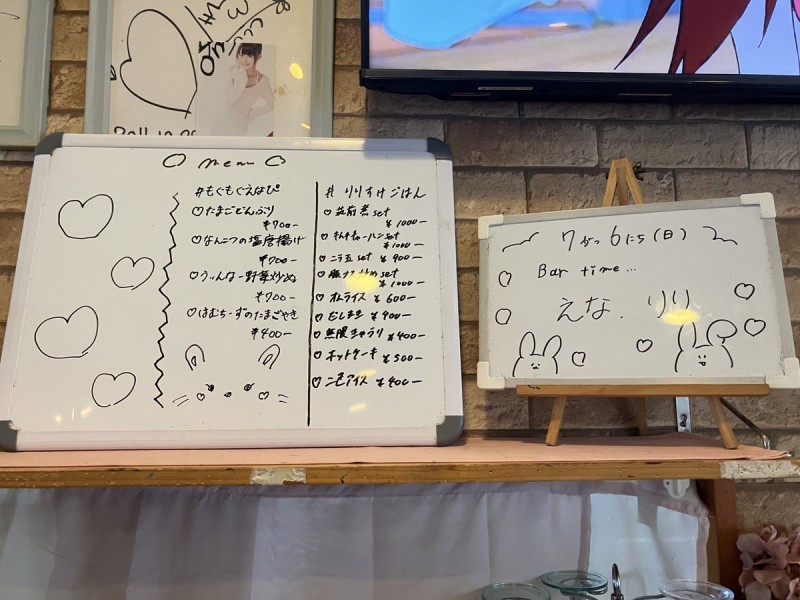 2011.10.25
menu
#もぐもぐえなぴ
たまごどんぶり
¥700-
なんこつの塩唐揚げ
¥700-
ウィンナー野菜炒め
¥700-
はむちーずのたまごやき
¥400-
# りりすけごはん
筑前煮 set
¥1000-
キムチチャーハン set
¥1000-
ニラ玉 set ¥900-
set
¥1000-
オムライス ¥600-
だしまき ¥400-
無限きゅうり ¥400-
ホットケーキ ¥500-
アイス ¥400-
7がつ 6にち (日)
Bar time...
えな. りり